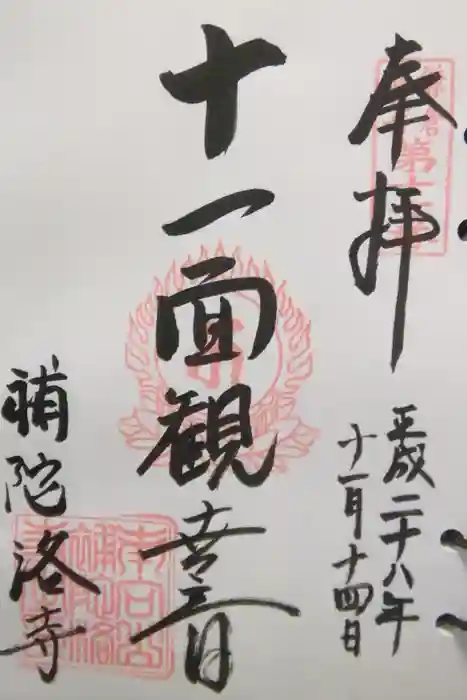 奉拝
平成二十八年
十一月十四日
十一面観音
補陀洛寺